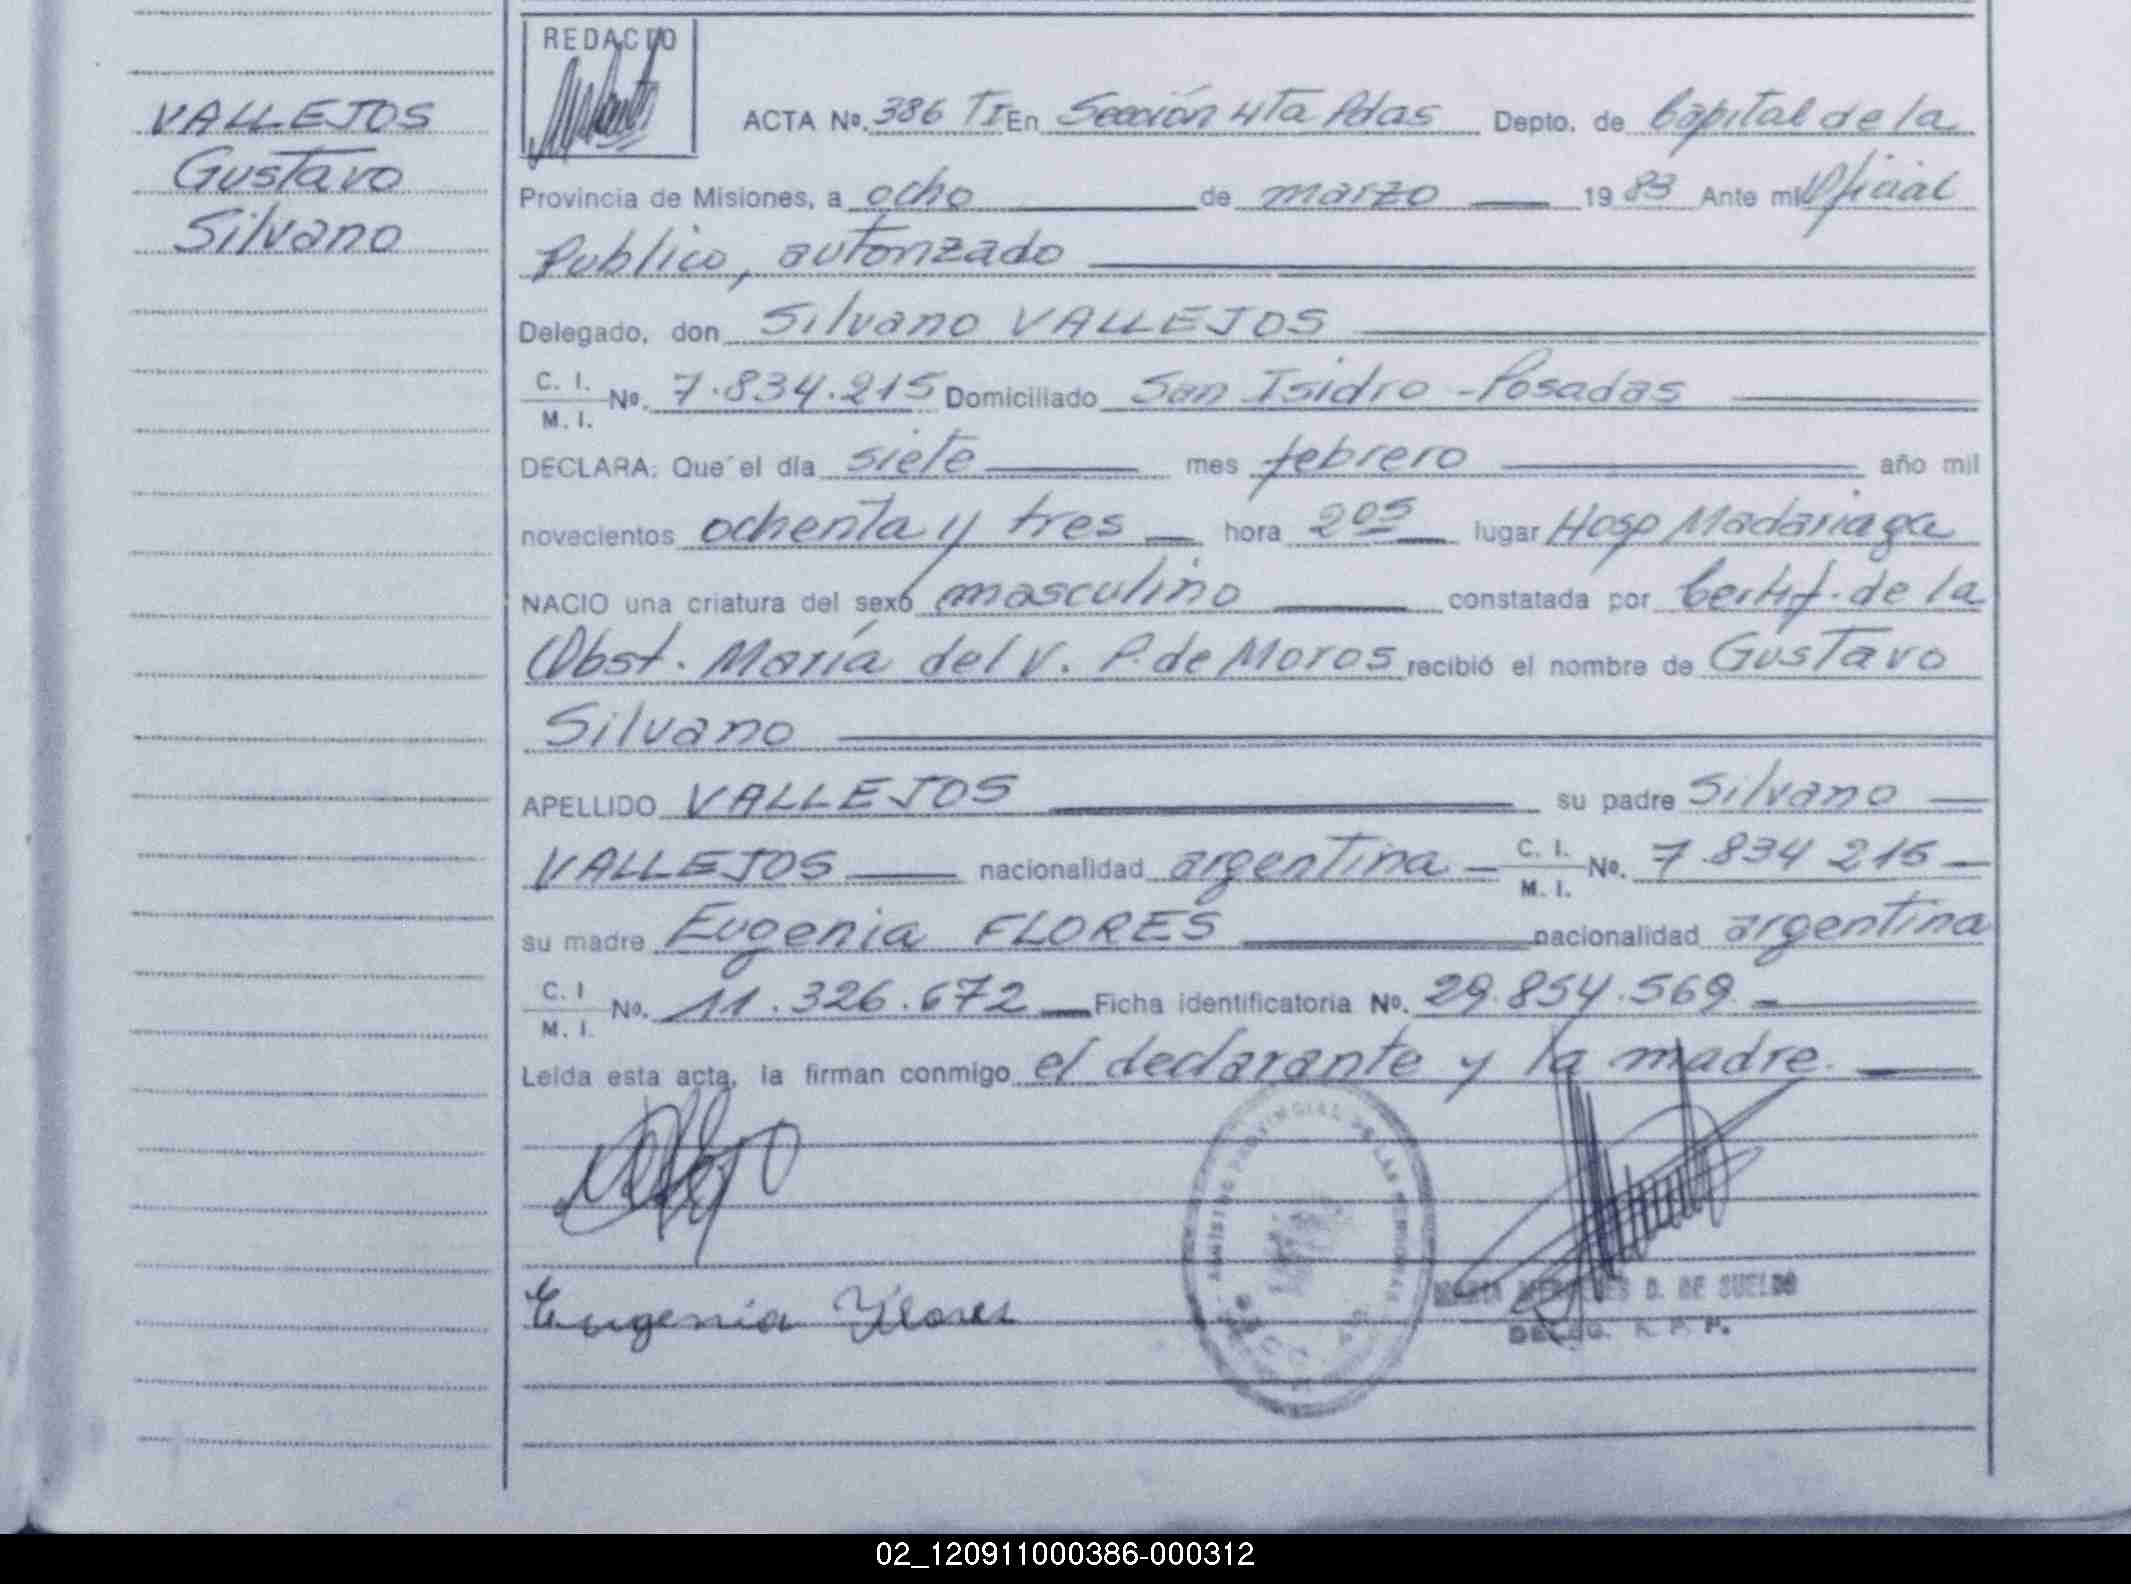 VALLEJOS
Gustavo
Silvano
REDACTO
ACTA Nº. 386 TI En Sección 4Ta Pdas Depto. de Capital de la
Provincia de Misiones, a ocho de marzo 19 83 Ante mi Oficial
Publico, autorizado
Delegado, don Silvano VALLEJOS
C. I.
M. I. Nº. 7.834.215 Domiciliado San Isidro - Posadas
DECLARA: Que el día siete mes febrero año mil
novecientos ochenta y tres hora 2 05 lugar Hosp Madariaga
NACIO una criatura del sexo masculino constatada por Certif. de la
Obst. María del V. P. de Moros recibió el nombre de Gustavo
Silvano
APELLIDO VALLEJOS su padre Silvano
VALLEJOS nacionalidad argentina C. I. M. I. Nº. 7.834 215
su madre Eugenia FLORES nacionalidad argentina
C. I M. I. Nº. 11.326.672 Ficha identificatoria Nº. 29.854.569
Leida esta acta, la firman conmigo el declarante y la madre.
Eugenia Flores
D. DE SUELDO
02_120911000386-000312